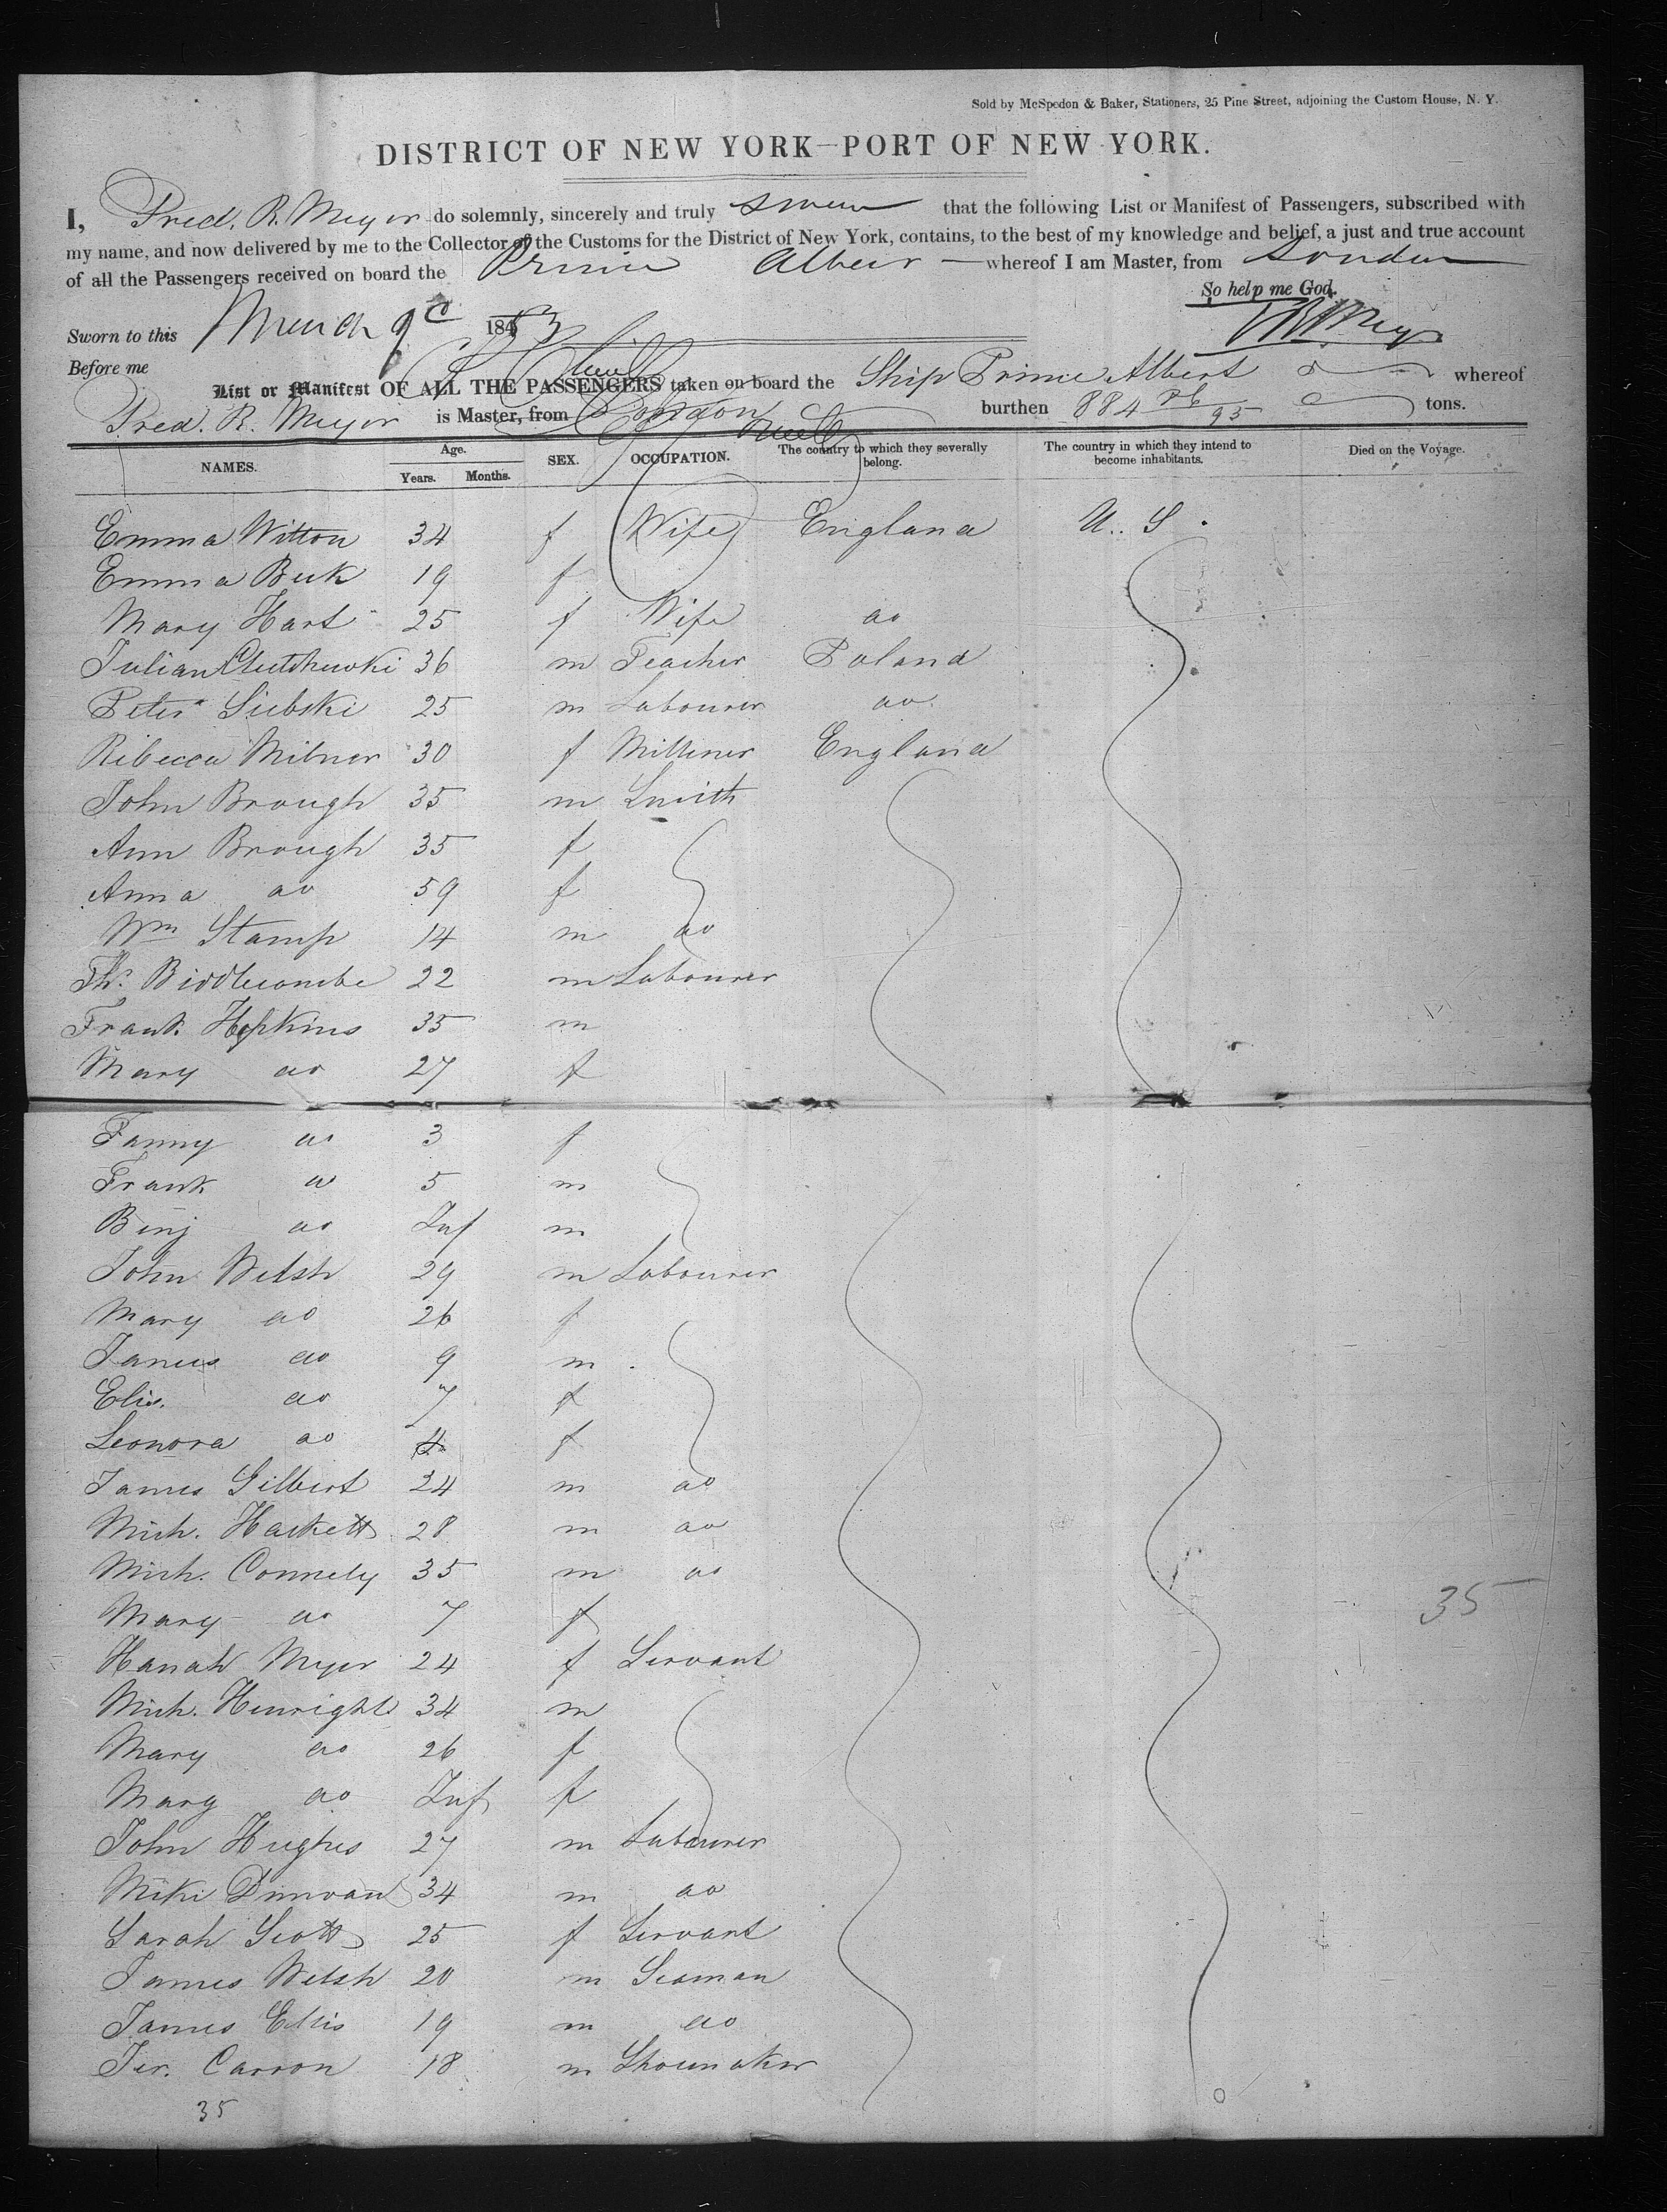 Sold by McSpedon & Baker, Stationers, 25 Pine Street, adjoining the Custom House, N. Y.
DISTRICT OF NEW YORK—PORT OF NEW YORK.
I, Fred. R. Meyer do solemnly, sincerely and truly swear that the following List or Manifest of Passengers, subscribed with
my name, and now delivered by me to the Collector of the Customs for the District of New York, contains, to the best of my knowledge and belief, a just and true account
of all the Passengers received on board the Prince Albert whereof I am Master, from London
So help me God.
Sworn to this March 9 1853 FR Meyer
Before me
List or Manifest OF ALL THE PASSENGERS taken on board the Ship Prince Albert whereof
Fred. R. Meyer is Master, from London burthen 884 86/95 tons.
NAMES. Age. Years. Months. SEX. OCCUPATION. The country to which they severally belong. The country in which they intend to become inhabitants. Died on the Voyage.
Emma Witton 34 f Wife England U.. S.
Emma Buk 19 f
Mary Hart 25 f Wife do
Julian 36 m Teacher Poland
Peter Siebski 25 m Labourer do.
Ribecca Milner 30 f Milliner England
John Brough 35 m Smith
Ann Brough 35 f
Anna do 59 f
Wm Stamp 14 m do
Ths. Biddlecombe 22 m Labourer
Frank Hopkins 35 m
Mary do 27 f
Fanny do 3 f
Frank do 5 m
Binj do Inf m
John Welsh 29 m Labourer
Mary do 26 f
James do 9 m
Elis. do 7 f
Leonora do 4 f
James Gilbert 24 m do
Mich. Hackett 28 m do
Mich. Connely 35 m do
Mary do 7 f
35
Hanah Meyer 24 f Servant
Mich. Henright 34 m
Mary do 26 f
Mary do Inf f
John Hughes 27 m Labourer
Miki Dunovan 34 m do
Sarah Scott 25 f Servant
James Welsh 20 m Seaman
James Ellis 19 m do
Jer. Carron 18 m Shoemaker
35